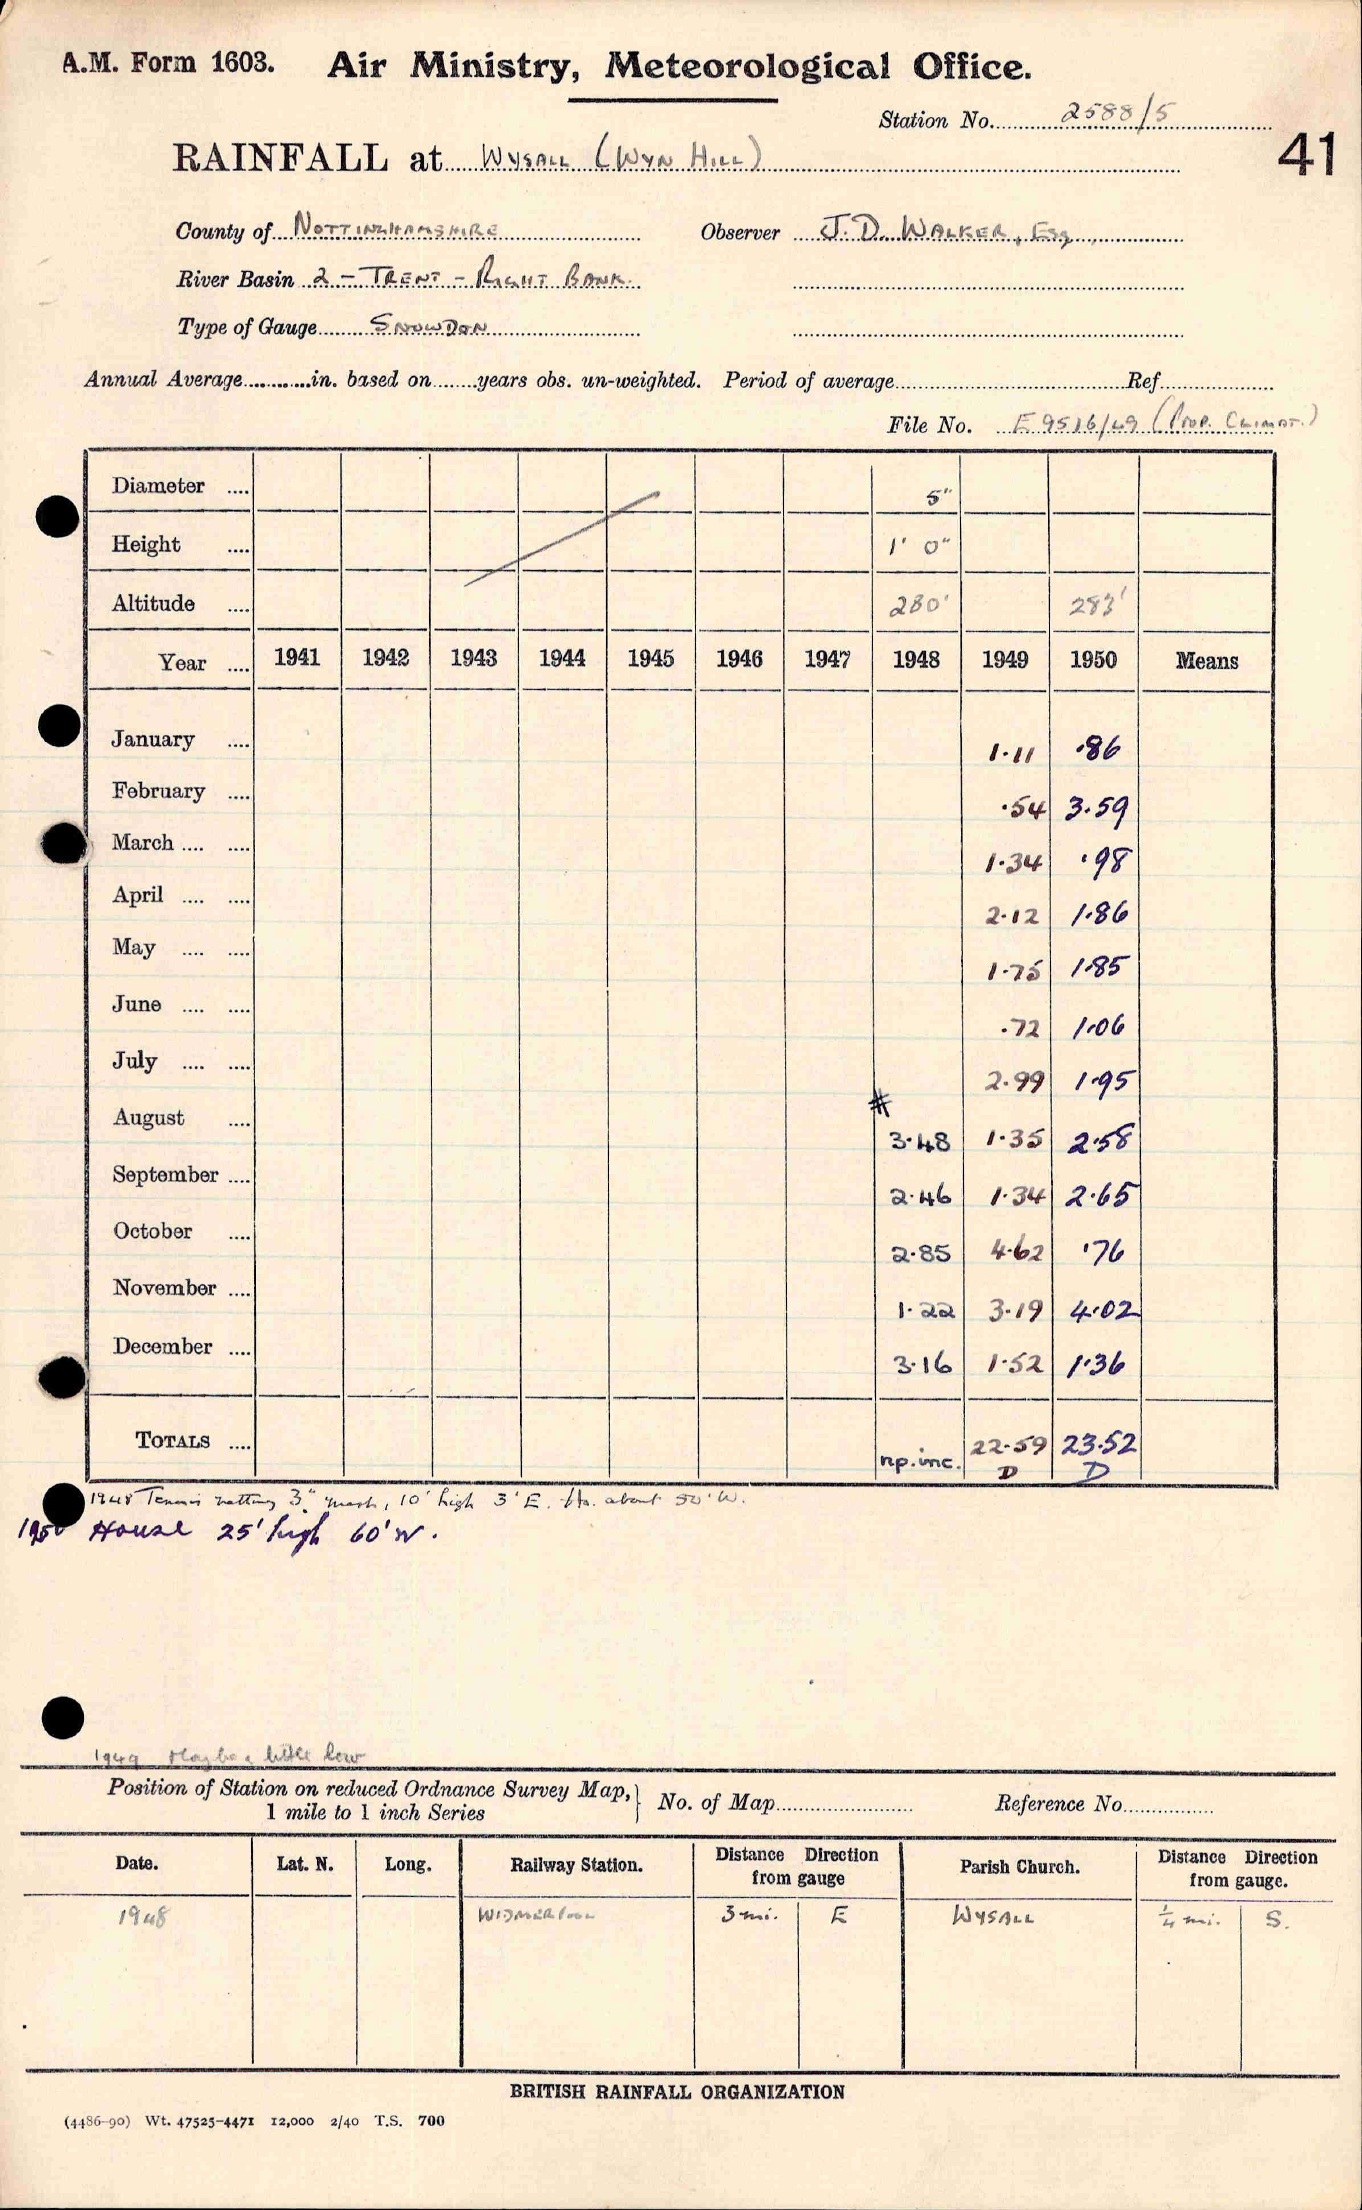 A.M. Form 1603. Air Ministry, Meteorological Office.
Station No. 2588/5
41
RAINFALL at Wysall (Wyn Hill)
County of Nottinghamshire Observer J. D. Walker, Esq.
River Basin 2 – Trent – Right Bank.
Type of Gauge Snowdon
Annual Average............in. based on.......years obs. un-weighted. Period of average..........Ref..........
File No. E 9516/49 (Prop. Climat.)
Diameter .... 5"
Height .... 1' 0"
Altitude .... 280' 283'
Year .... 1941 1942 1943 1944 1945 1946 1947 1948 1949 1950 Means
January .... 1.11 .86
February .... .54 3.59
March .... .... 1.34 .98
April .... .... 2.12 1.86
May .... .... 1.75 1.85
June .... .... .72 1.06
July .... .... 2.99 1.95
#
August .... 3.48 1.35 2.58
September .... 2.46 1.34 2.65
October .... 2.85 4.62 .76
November .... 1.22 3.19 4.02
December .... 3.16 1.52 1.36
Totals .... np.inc. 22.59 23.52
D D
1948 Tennis netting 3" mesh, 10' high 3' E. Ho. about 50' W.
1950 House 25' high 60' W.
1949 Maybe a little low
Position of Station on reduced Ordnance Survey Map, } No. of Map.......... Reference No..........
1 mile to 1 inch Series
Date. Lat. N. Long. Railway Station. Distance Direction from gauge Parish Church. Distance Direction from gauge.
1948 Widmerpool 3 mi. E Wysall ¼ mi. S.
BRITISH RAINFALL ORGANIZATION
(4486-90) Wt. 47525-4471 12,000 2/40 T.S. 700